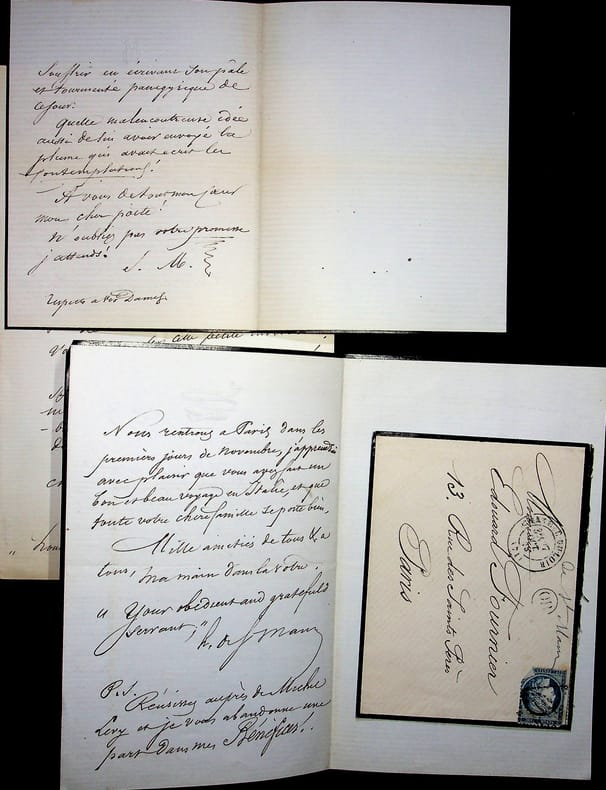 Souffrir en écrivant son pâle
et tourmenté panegyrique de
ce jour.
Quelle malencontreuse idée
aussi de lui avoir envoyé la
plume qui avait écrit les
Contemplations!
A vous
mon cher poète!
N'oubliez pas votre promesse
j'attends!
S. M.
respects a vos Dames
cette petite
Nous rentrons a Paris, dans les
premiers jours de novembre, j'apprends
avec plaisir que vous avez fait un
bon et beau voyage en Italie, et que
toute votre chere famille se porte bien.
Mille amitiés de tous &a
tous, ma main dans la votre.
"Your obedient and grateful
servant,"
P.S. Réussissez auprès de Michel
Levy et je vous abandonne une
part dans mes Bénéfices!
Monsieur
Edouard Fournier
13. Rue des Saints Pères
Paris